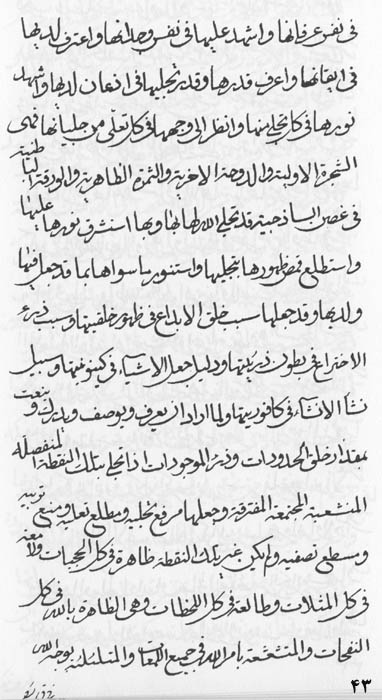 فی نفس عرفانها واشهد علیها فی نفس وجدانها واعترف لدیها
فی ایقانها واعرف قدرها وقدر تجلیها فی اذعان لدیها واشهد
نورها فی کل تجلی منها وانظر الی وجهها فی کل تعلی من جلیاتها فهی
الشجرة الاولیة والدوحة الاخریة والثمرة الظاهریة والورقة الباطنیة
فی غصن الساذجیة قد تجلی الله لها بها وبها استشرق نورها علیها
واستطلع شمس ظهورها بتجلیها واستنور ما سواها بما قد جعل فیها
ولدیها وقد جعلها سبب خلق الابداع فی ظهور خلقیتها وسبب ذرء
الاختراع فی بطون ذریتها ودلیل جعل الاشیاء فی کینونیتها وسبیل
نشأ الانشاء فی کافوریتها ولما اراد ان یعرف ویوصف ویدرک وینعت
بمبدأ خلق المحدودات وذرء الموجودات اذا تجلی بتلک النقطة المنفصلة
المنشعبة المجتمعة المفترقة وجعلها مرفع تجلیه ومطلع تعلیه ومنبع
ومسطع تصفیه ولم یکن غیر تلک النقطة ظاهرة فی کل الحجبات ولامعة
فی کل المثلات وطالعة فی کل اللحظات وهی الظاهرة بالله فی کل
النفحات والمتشعشعة بامر الله فی جمیع اللمعات والمتلئلئة بوجه الله
۴۳